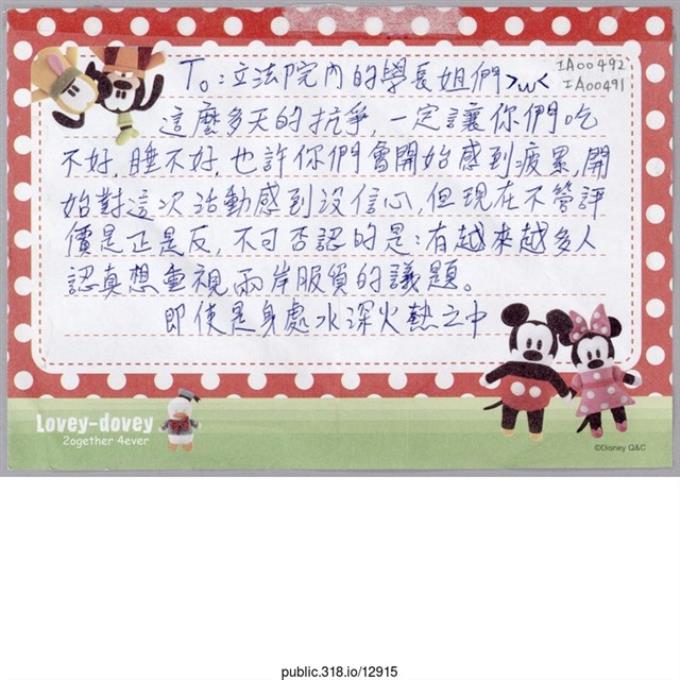 To:立法院內的學長姐們>w<
IA00492
IA00491
這麼多天的抗爭,一定讓你們吃
不好,睡不好,也許你們會開始感到疲累,開
始對這次活動感到沒信心,但現在不管評
價是正是反,不可否認的是:有越來越多人
認真想重視兩岸服貿的議題。
即使是身處水深火熱之中
Lovey-dovey
2ogether 4ever
©Disney Q&C
public.318.io/12915